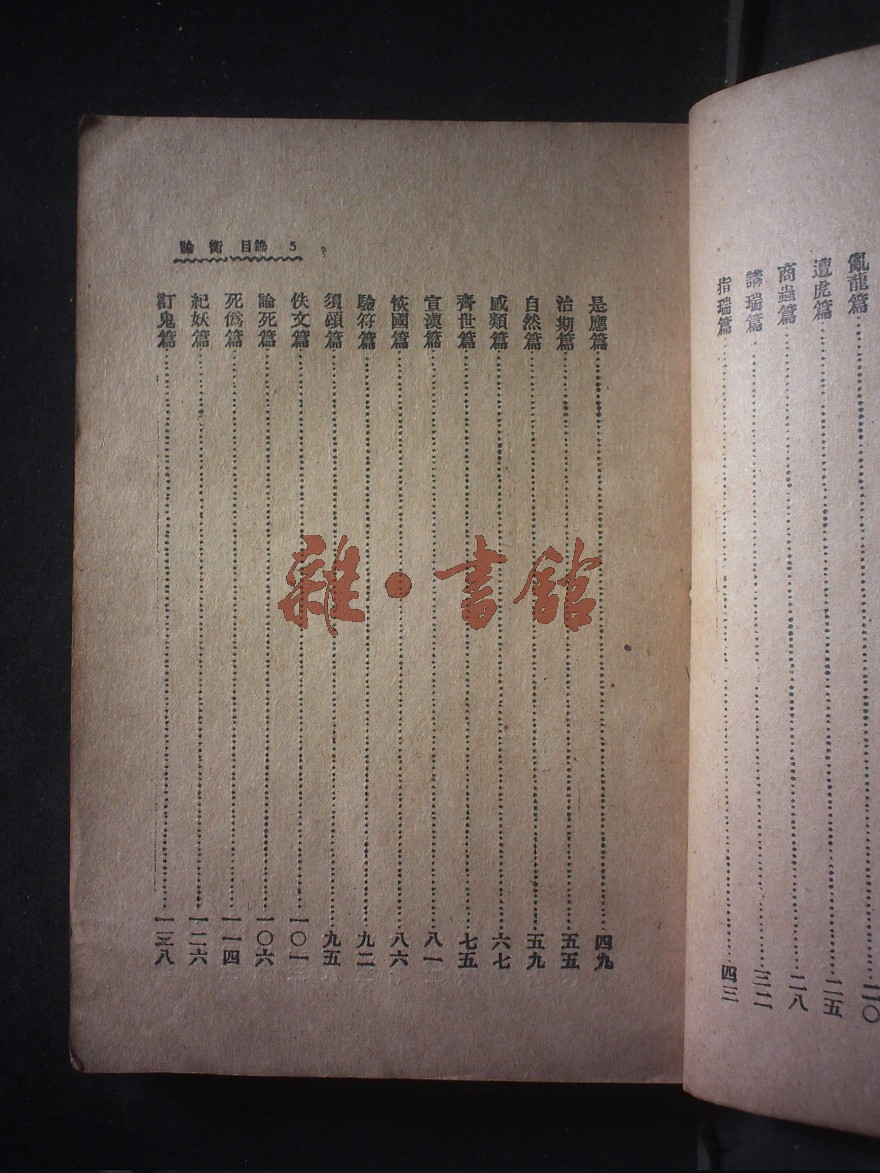 亂龍篇……二〇
遭虎篇……二五
商蟲篇……二八
講瑞篇……三二
指瑞篇……四三
論衡 目錄 5
是應篇……四九
治期篇……五五
自然篇……五九
感類篇……六七
齊世篇……七五
宣漢篇……八一
恢國篇……八六
驗符篇……九二
須頌篇……九五
佚文篇……一〇一
論死篇……一〇六
死僞篇……一一四
紀妖篇……一二六
訂鬼篇……一三八
雜·書館